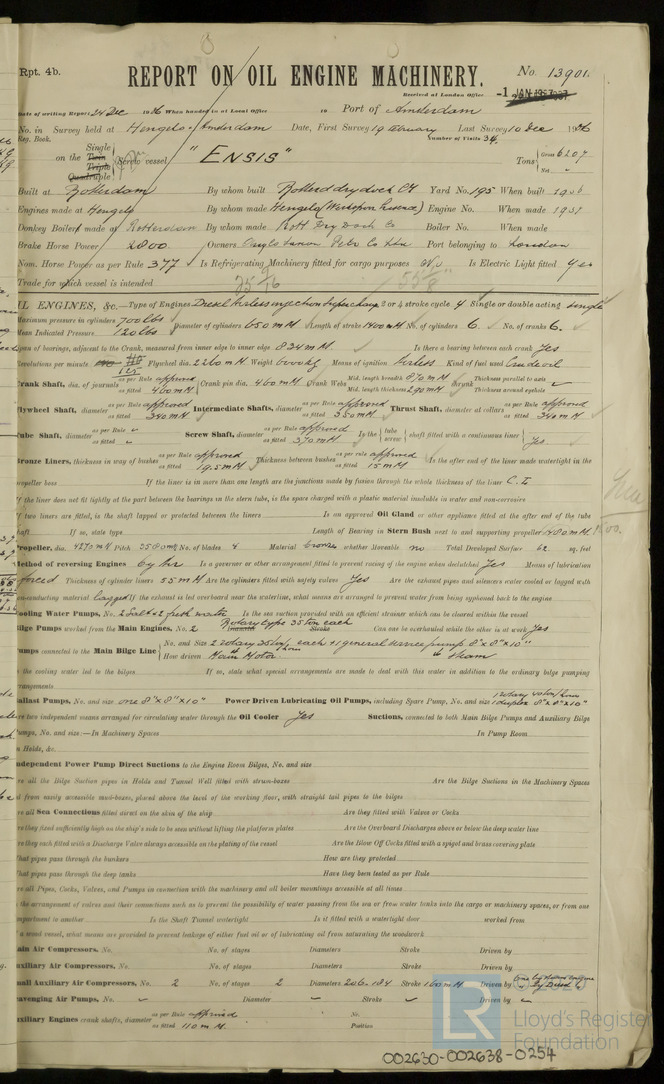 Rpt. 4b.
REPORT ON OIL ENGINE MACHINERY.
No. 13901
Received at London Office -1 JAN 1937
Date of writing Report 24 Dec 1936 When handed in at Local Office 19 Port of Amsterdam
No. in Survey held at Hengelo & Amsterdam Date, First Survey 19 February Last Survey 10 Dec 1936
Reg. Book. Number of Visits 34
on the Single Twin Triple Quadruple Screw vessel "ENSIS" Tons Gross 6207 Net
Built at Rotterdam By whom built Rotterd drydock Cy Yard No. 195 When built 1936
Engines made at Hengelo By whom made Hengelo Engine No. When made 1937
Donkey Boilers made at Rotterdam By whom made Rott Dry Dock Co Boiler No. When made
Brake Horse Power 2800 Owners Anglo Saxon Petr Co Ltd Port belonging to London
Nom. Horse Power as per Rule 377 Is Refrigerating Machinery fitted for cargo purposes No Is Electric Light fitted Yes
Trade for which vessel is intended
OIL ENGINES, &c.—Type of Engines Diesel Airless injection Supercharge 2 or 4 stroke cycle 4 Single or double acting single
Maximum pressure in cylinders 700 lbs Diameter of cylinders 650 mM Length of stroke 1400 mM No. of cylinders 6 No. of cranks 6
Mean Indicated Pressure 120 lbs
Span of bearings, adjacent to the Crank, measured from inner edge to inner edge 834 mM Is there a bearing between each crank Yes
Revolutions per minute 125 Flywheel dia. 2260 mM Weight 6000 kg Means of ignition Airless Kind of fuel used Crude oil
Crank Shaft, dia. of journals as per Rule approved as fitted 460 mM Crank pin dia. 460 mM Crank Webs Mid. length breadth 870 mM Mid. length thickness 290 mM shrunk Thickness parallel to axis Thickness around eyehole
Flywheel Shaft, diameter as per Rule approved as fitted 340 mM Intermediate Shafts, diameter as per Rule approved as fitted 350 mM Thrust Shaft, diameter at collars as per Rule approved as fitted 340 mM
Tube Shaft, diameter as per Rule as fitted Screw Shaft, diameter as per Rule approved as fitted 370 mM Is the tube screw shaft fitted with a continuous liner Yes
Bronze Liners, thickness in way of bushes as per Rule approved as fitted 19.5 mM Thickness between bushes as per rule approved as fitted 15 mM Is the after end of the liner made watertight in the
propeller boss If the liner is in more than one length are the junctions made by fusion through the whole thickness of the liner C. L
If the liner does not fit tightly at the part between the bearings in the stern tube, is the space charged with a plastic material insoluble in water and non-corrosive
If two liners are fitted, is the shaft lapped or protected between the liners Is an approved Oil Gland or other appliance fitted at the after end of the tube
shaft If so, state type Length of Bearing in Stern Bush next to and supporting propeller 1480 mM
Propeller, dia. 4270 mM Pitch 3580 mM No. of blades 4 Material bronze whether Moveable no Total Developed Surface 62 sq. feet
Method of reversing Engines by air Is a governor or other arrangement fitted to prevent racing of the engine when declutched Yes Means of lubrication
forced Thickness of cylinder liners 55 mM Are the cylinders fitted with safety valves Yes Are the exhaust pipes and silencers water cooled or lagged with
non-conducting material lagged If the exhaust is led overboard near the waterline, what means are arranged to prevent water being syphoned back to the engine
Cooling Water Pumps, No. 2 salt & 2 fresh water Is the sea suction provided with an efficient strainer which can be cleared within the vessel
Bilge Pumps worked from the Main Engines, No. 2 Rotary type 35 ton each Stroke Can one be overhauled while the other is at work Yes
Pumps connected to the Main Bilge Line No. and Size 2 rotary 35 ton/hour each & 1 general service pump 8"x8"x10"
How driven Main Motor steam
Is the cooling water led to the bilges If so, state what special arrangements are made to deal with this water in addition to the ordinary bilge pumping
arrangements
Ballast Pumps, No. and size one 8"x8"x10" Power Driven Lubricating Oil Pumps, including Spare Pump, No. and size 1 duplex 8"x8"x10"
Are two independent means arranged for circulating water through the Oil Cooler Yes Suctions, connected to both Main Bilge Pumps and Auxiliary Bilge
Pumps, No. and size:—In Machinery Spaces In Pump Room
In Holds, &c.
Independent Power Pump Direct Suctions to the Engine Room Bilges, No. and size
Are all the Bilge Suction pipes in Holds and Tunnel Well fitted with strum-boxes Are the Bilge Suctions in the Machinery Spaces
led from easily accessible mud-boxes, placed above the level of the working floor, with straight tail pipes to the bilges
Are all Sea Connections fitted direct on the skin of the ship Are they fitted with Valves or Cocks
Are they fixed sufficiently high on the ship's side to be seen without lifting the platform plates Are the Overboard Discharges above or below the deep water line
Are they each fitted with a Discharge Valve always accessible on the plating of the vessel Are the Blow Off Cocks fitted with a spigot and brass covering plate
What pipes pass through the bunkers How are they protected
What pipes pass through the deep tanks Have they been tested as per Rule
Are all Pipes, Cocks, Valves, and Pumps in connection with the machinery and all boiler mountings accessible at all times
Is the arrangement of valves and their connections such as to prevent the possibility of water passing from the sea or from water tanks into the cargo or machinery spaces, or from one
compartment to another Is the Shaft Tunnel watertight Is it fitted with a watertight door worked from
If a wood vessel, what means are provided to prevent leakage of either fuel oil or of lubricating oil from saturating the woodwork
Main Air Compressors, No. No. of stages Diameters Stroke Driven by
Auxiliary Air Compressors, No. No. of stages Diameters Stroke Driven by
Small Auxiliary Air Compressors, No. 2 No. of stages 2 Diameters 206-184 Stroke 160 mM Driven by one by steam engine
Scavenging Air Pumps, No. Diameter Stroke Driven by
Auxiliary Engines crank shafts, diameter as per Rule approved as fitted 110 mM. No. Position
LR
© 2020
Lloyd's Register
Foundation
002630-002638-0254